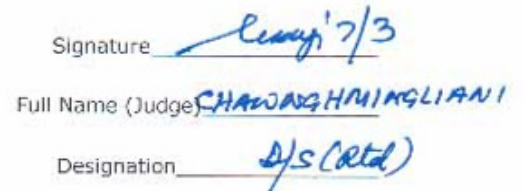 Signature 7/3
Full Name (Judge) CHAWNGHMINGLIANI
Designation D/S (Retd)